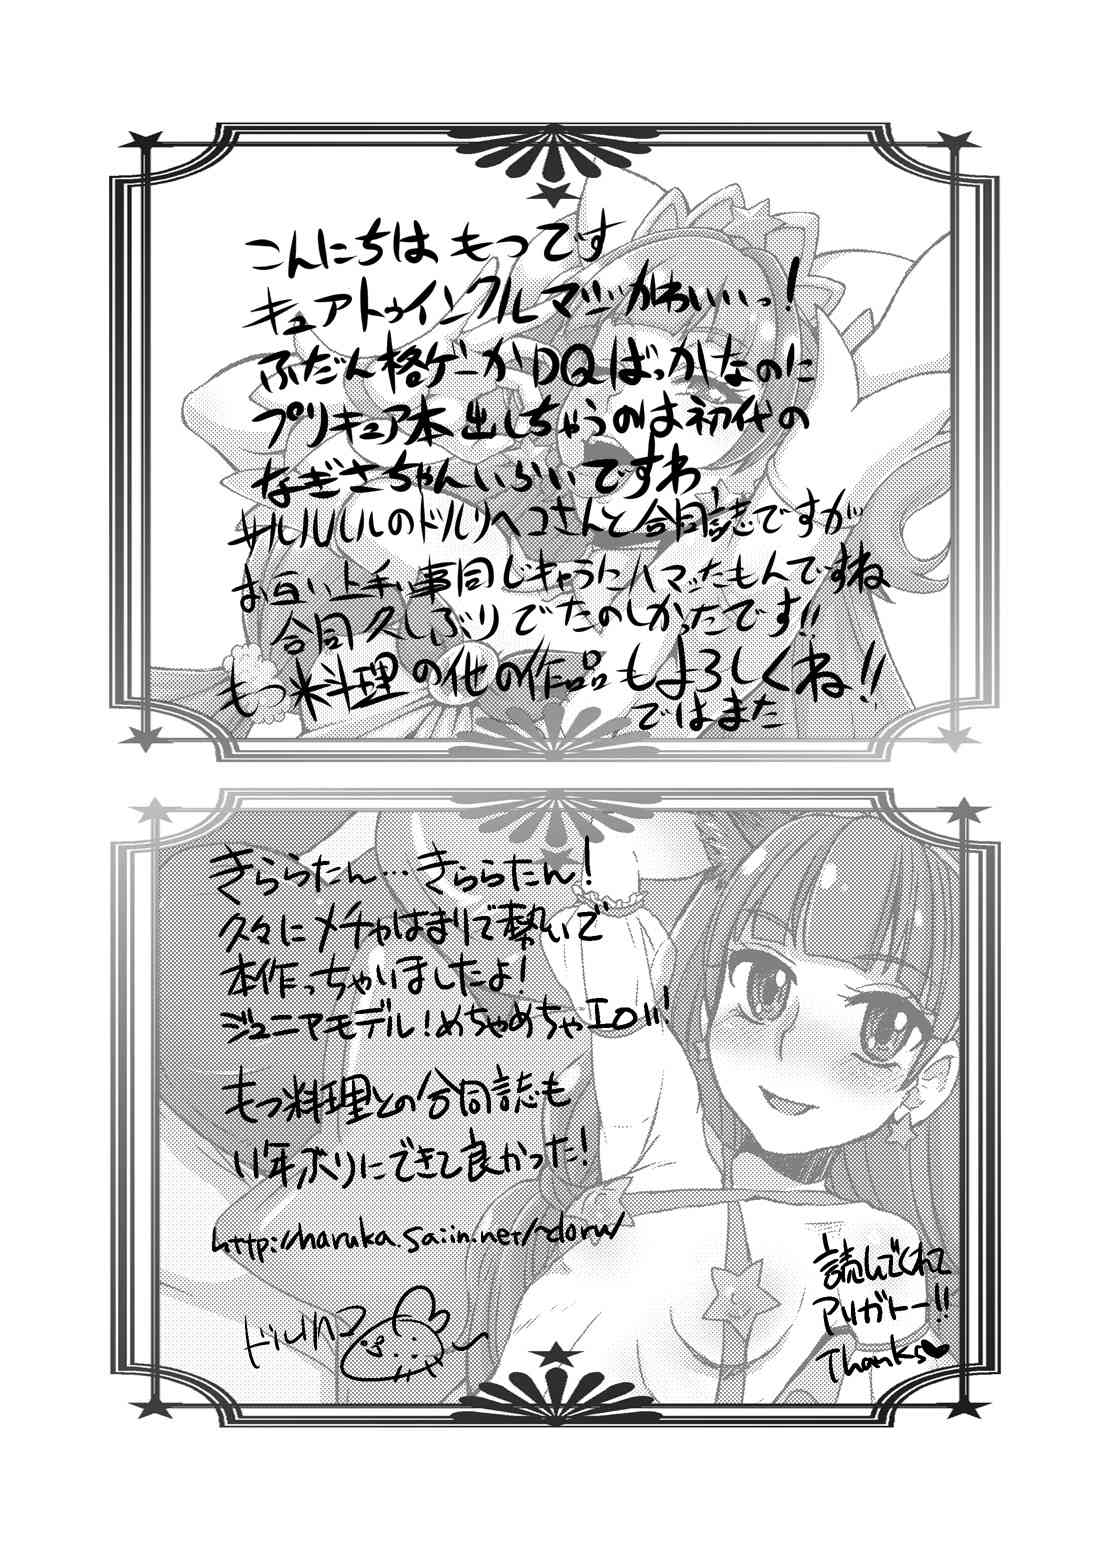 こんにちは もつです
キュアトゥインクルマジかわいいっ!
ふだん格ゲーかDQばっかなのに
プリキュア本出しちゃうのは初代の
なぎさちゃんいらいですわ
サルルルルのドルリヘコさんと合同誌ですが
お互い上手い事同じキャラにハマったもんですね
合同久しぶりでたのしかったです!!
もつ料理の他の作品もよろしくね!!
ではまた
きららたん…きららたん!
久々にメチャはまりで勢いで
本作っちゃいましたよ!
ジュニアモデル!めちゃめちゃエロいい!
もつ料理との合同誌も
11年ボリにできて良かった!
http://haruka.saiin.net/~doru/
読んでくれて
アリガトー!!
Thanks♥